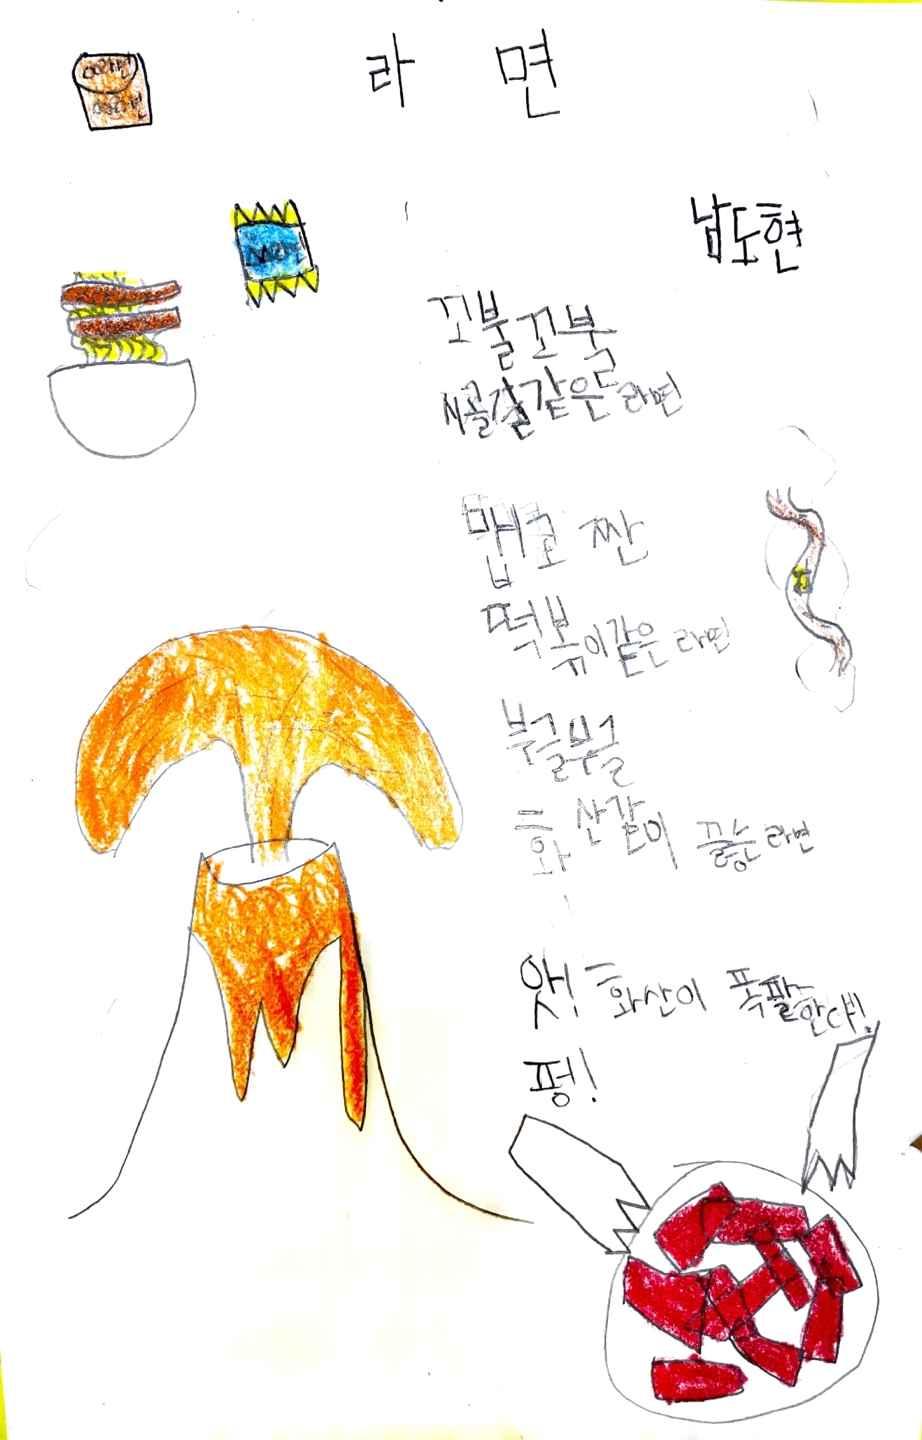 라면
남도현
꼬불꼬불
시골길같은 라면
맵고 짠
떡볶이같은 라면
부글부글
화산같이 끓는 라면
앗! 화산이 폭팔한다!
펑!